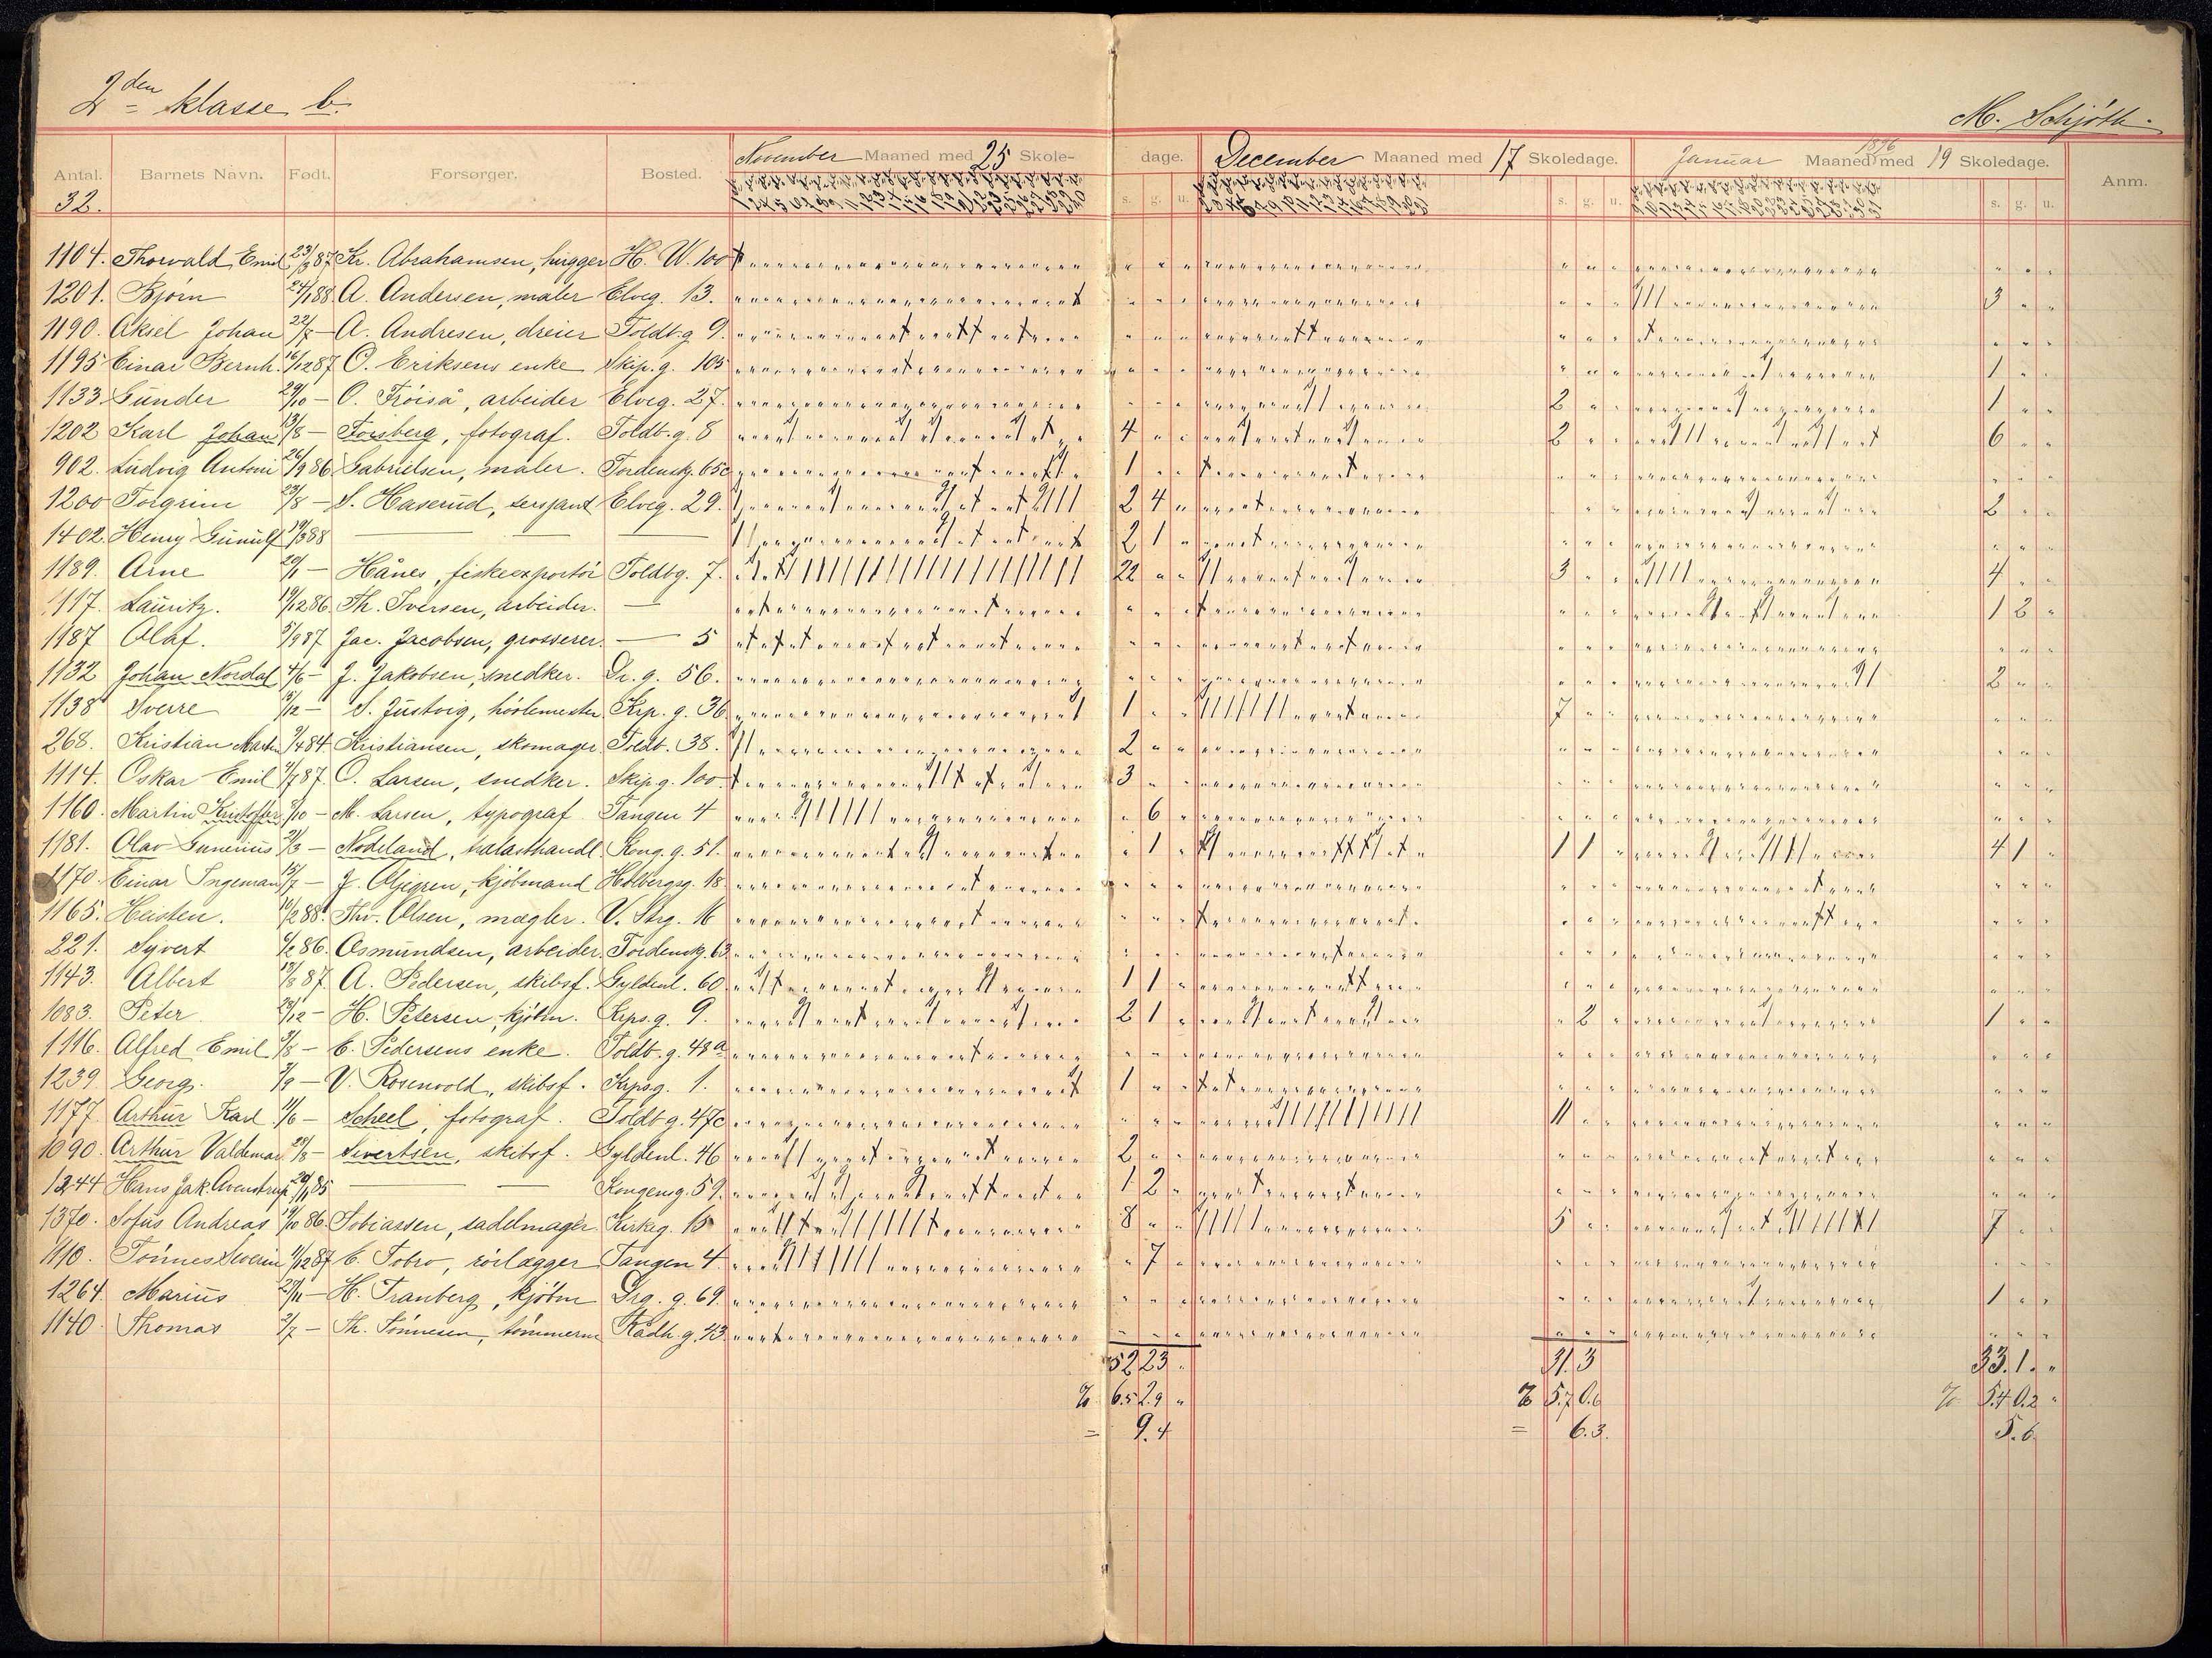 2den klasse b.
M. Schjöth.
Antal. Barnets Navn. Født. Forsørger. Bosted. November Maaned med 25 Skole- dage. December Maaned med 17 Skoledage. Januar 1896 Maaned med 19 Skoledage. Anm.
32. s. g. u. s. g. u. s. g. u.
1104. Thorvald Emil 23/3 87 Kr. Abrahamsen, H. W. 100
1201. Bjørn 24/1 88 A. Andersen, maler Elveg. 13. 3
1190. Aksel Johan 22/7 — A. Andresen, dreier Toldb.g 9.
1195 Einar Bernh. 16/12 87 O. Eriksens enke Skip.g. 105 1
1133 Gunder 29/10 — O. Fröiså, arbeider Elveg. 27. 2 1
1202 Karl Johan 13/8 — Forsberg, fotograf. Toldb.g. 8 4 2 6
902. Ludvig Antoni 26/9 86 Gabrielsen, maler. Tordenskg. 65c 1
1200 Torgrim 23/8 — S. Haserud, sersjant Elveg. 29. 2 4 2
1402. Henry Gunulf 19/3 88 — — — 2 1
1189. Arne 20/1 — Hånes, fiskeexportör Toldbg. 7. 22 3 4
1117. Lauritz. 19/12 86 Th. Iversen, arbeider. — 1 2
1187 Olaf. 5/9 87 Jac. Jacobsen, grosserer. — 5
1132 Johan Nordal 4/6 — J. Jakobsen, snedker. Dr. g. 56. 2
1138 Sverre 5/12 — S. Justvig, Krp. g. 36 1 7
268. Kristian Martin 9/4 84 Kristiansen, skomager. Toldb. 38. 2
1114. Oskar Emil 4/7 87. O. Larsen, snedker. Skip.g. 100 3
1160. Martin Kristoffer 9/10 — M. Larsen, typograf Tangen 4 6
1181. Olav Gunerius 21/3 — Nodeland, Kong. g. 51. 1 1 1 4 1
1170. Einar Ingeman 15/7 — J. kjöbmand Holbergsg. 18
1165. Heisten. 10/2 88. Thv. Olsen, mægler. V. Strg. 16
221. Syvert 6/2 86. Osmundsen, arbeider. Tordenskg. 63
1143. Albert 13/8 87. A. Pedersen, skibsf. Gyldenl. 60. 1 1
1083. Peter 23/12 — H. Petersen, kjöbm. Krps.g. 9. 2 1 2 1
1116. Alfred Emil 3/8 — E. Pedersens enke. Toldb.g. 48a
1239. Georg. 7/9 — V. Rosenvold, skibsf. Krpsg. 1. 1
1177. Arthur Karl 11/6 — Scheel, fotograf. Toldb.g. 47c 11
1090. Arthur Valdemar 28/8 — Sivertsen, skibsf. Gyldenl. 46 2
1244 Hans Jak. Avenstrup 20/11 85 — — Kongensg. 59. 1 2
1370. Sofus Andreas 19/10 86. Tobiassen, sadelmager. Kirkeg. 15 8 5 7
1110. Tönnes Severin 11/12 87 E. Tobro, rörlægger Tangen 4 7
1264. Marius 25/11 — H. Tranberg, kjöbm Drg. g. 69. 1
1140. Thomas 3/7 — Th. Tönnesen, tömmerm Rådh.g. 43
52 23 31. 3 33. 1.
% 6.5 2.9 % 5.7 0.6 % 5.4 0.2
= 9.4 = 6.3. 5.6